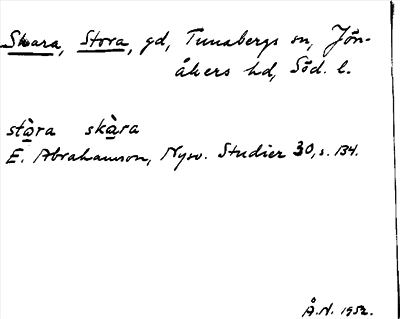 Skara, Stora, gd, Tunabergs sn, Jön-
åkers hd, Söd. l.
stȧ̲ra skȧ̲ra
E. Abrahamson, Nysv. Studier 30, s. 134.
Å.N. 1952.